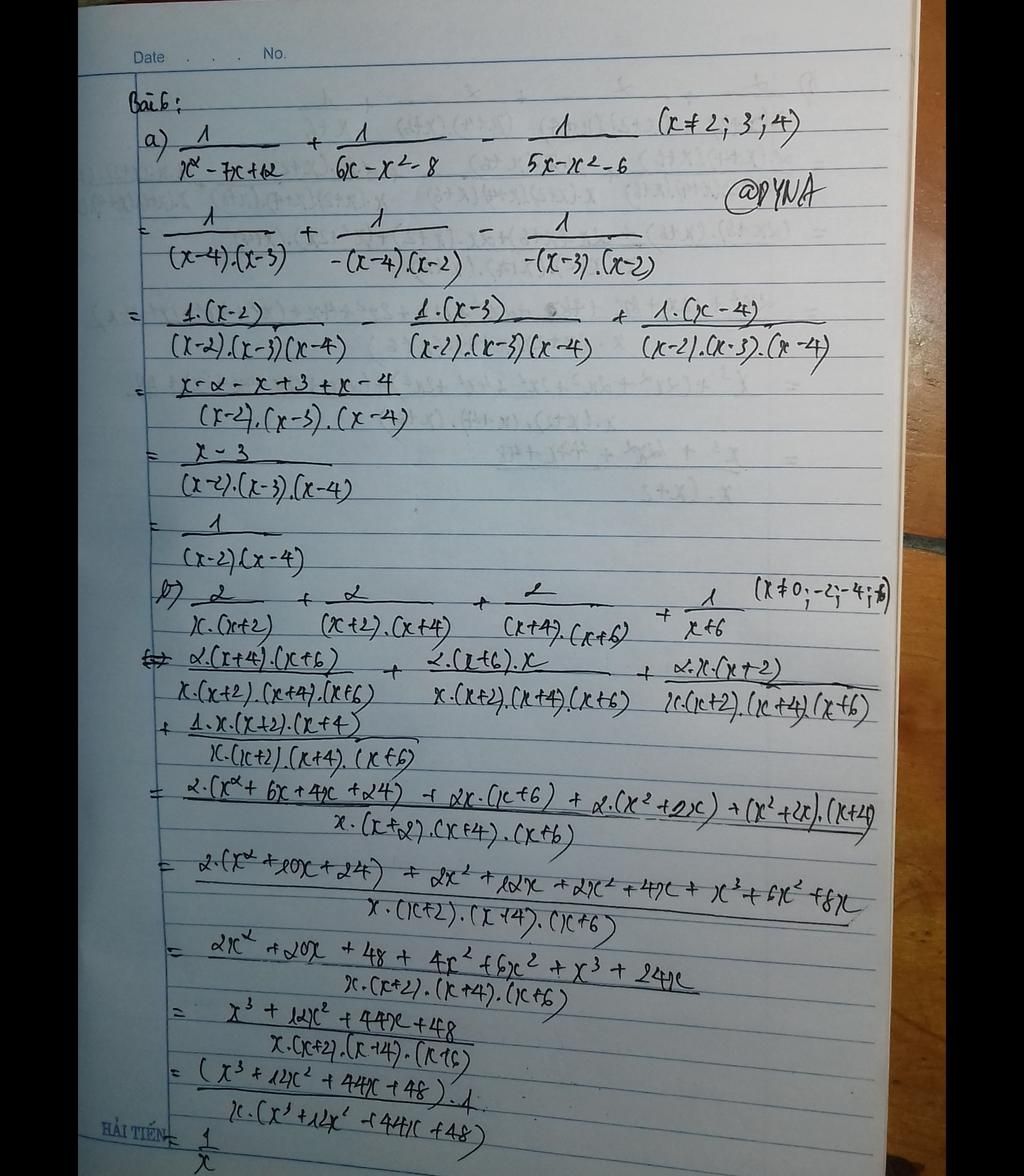 Date . . . No.
Bài 6:
a) 1/(x² - 7x + 12) + 1/(6x - x² - 8) - 1/(5x - x² - 6) (x ≠ 2; 3; 4)
@DYNA
= 1/((x-4).(x-3)) + 1/(-(x-4).(x-2)) - 1/(-(x-3).(x-2))
= 1.(x-2)/((x-2).(x-3)(x-4)) - 1.(x-3)/((x-2).(x-3)(x-4)) + 1.(x-4)/((x-2).(x-3).(x-4))
= (x-2-x+3+x-4)/((x-2).(x-3).(x-4))
= (x-3)/((x-2).(x-3).(x-4))
= 1/((x-2)(x-4))
b) 2/(x.(x+2)) + 2/((x+2).(x+4)) + 2/((x+4).(x+6)) + 1/(x+6) (x ≠ 0; -2; -4; -6)
= 2.(x+4).(x+6)/(x.(x+2).(x+4).(x+6)) + 2.(x+6).x/(x.(x+2).(x+4).(x+6)) + 2.x.(x+2)/(x.(x+2).(x+4).(x+6))
+ 1.x.(x+2).(x+4)/(x.(x+2).(x+4).(x+6))
= (2.(x² + 6x + 4x + 24) + 2x.(x+6) + 2.(x² + 2x) + (x² + 2x).(x+4))/(x.(x+2).(x+4).(x+6))
= (2.(x² + 10x + 24) + 2x² + 12x + 2x² + 4x + x³ + 6x² + 8x)/(x.(x+2).(x+4).(x+6))
= (2x² + 20x + 48 + 4x² + 6x² + x³ + 24x)/(x.(x+2).(x+4).(x+6))
= (x³ + 12x² + 44x + 48)/(x.(x+2).(x+4).(x+6))
= (x³ + 12x² + 44x + 48).1/(x.(x³ + 12x² + 44x + 48))
HẢI TIẾN
= 1/x